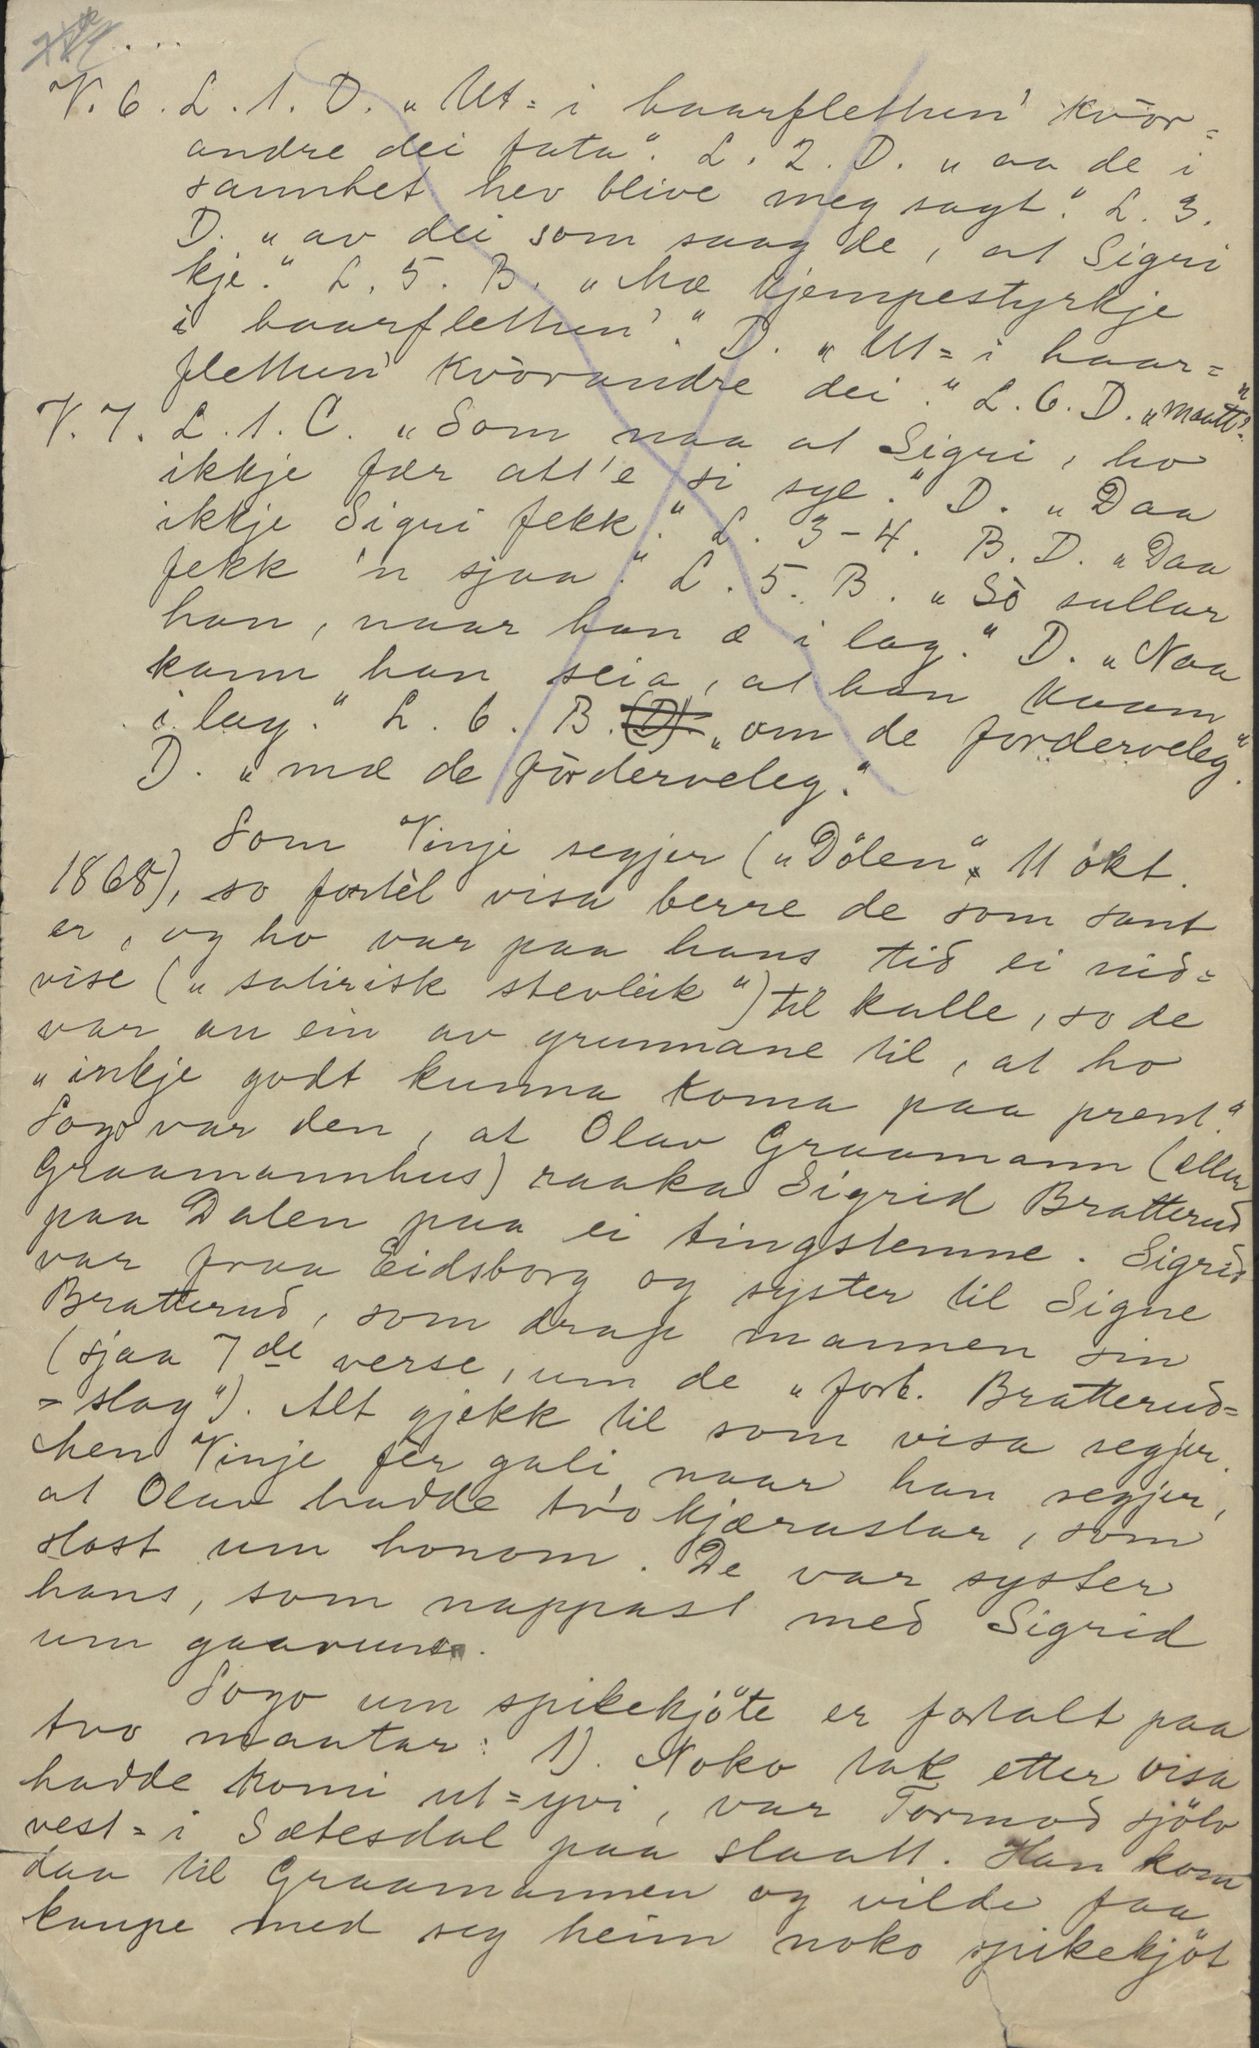 V. 6. L. 1. D. „Ut=i haarflettun' kvòr=
andre dei fata“. L. 2. D. „aa de i
sannhet hev blive meg sagt.“ L. 3.
D. „av dei som saag de, at Sigri
kje.“ L. 5. B. „Mæ kjempestyrkje
i haarflettun'.“ D. „Ut=i haar=
flettun' kvòrandre dei.“ L. 6. D. „maatt“
V. 7. L. 1. C. „Som naa at Sigri, ho
ikkje fær att'e si sye.“ D. „Daa
ikkje Sigri fekk.“ L. 3-4. B. D. „Daa
fekk 'n sjaa.“ L. 5. B. „Sò sullar
han, naar han æ i lag.“ D. „Naa
kann han seia, at han kaam
i lag.“ L. 6. B. (D). „om de forderveleg“.
D. „mæ de fòrderveleg.“
Som Vinje segjer („Dölen“, 11 okt.
1868), so fortèl visa berre de som sant
er, og ho var paa hans tid ei nid=
vise („satirisk stevleik“) til kalle, so de
var au ein av grunnane til, at ho
„inkje godt kunna koma paa prent.“
Sogo var den, at Olav Graamann (ellur
Graamannhus) raaka Sigrid Bratterud
paa Dalen paa ei tingstemne. Sigrid
var fraa Eidsborg og syster til Signe
Bratterud, som drap mannen sin
(sjaa 7de verse, um de „forb. Bratterud=
=slag“). Alt gjekk til som visa segjer.
Men Vinje fèr gali, naar han segjer,
at Olav hadde tvo kjærastar, som
slost um honom. De var syster
hans, som nappast med Sigrid
um gaavune.
Sogo um spikekjöte er fortalt paa
tvo maatar: 1). Noko tak etter visa
hadde komi ut=yvi, var Tormod sjölv
vest=i Sætesdal paa slaatt. Han kom
daa til Graamannen og vilde faa
kaupe med seg heim noko spikekjöt